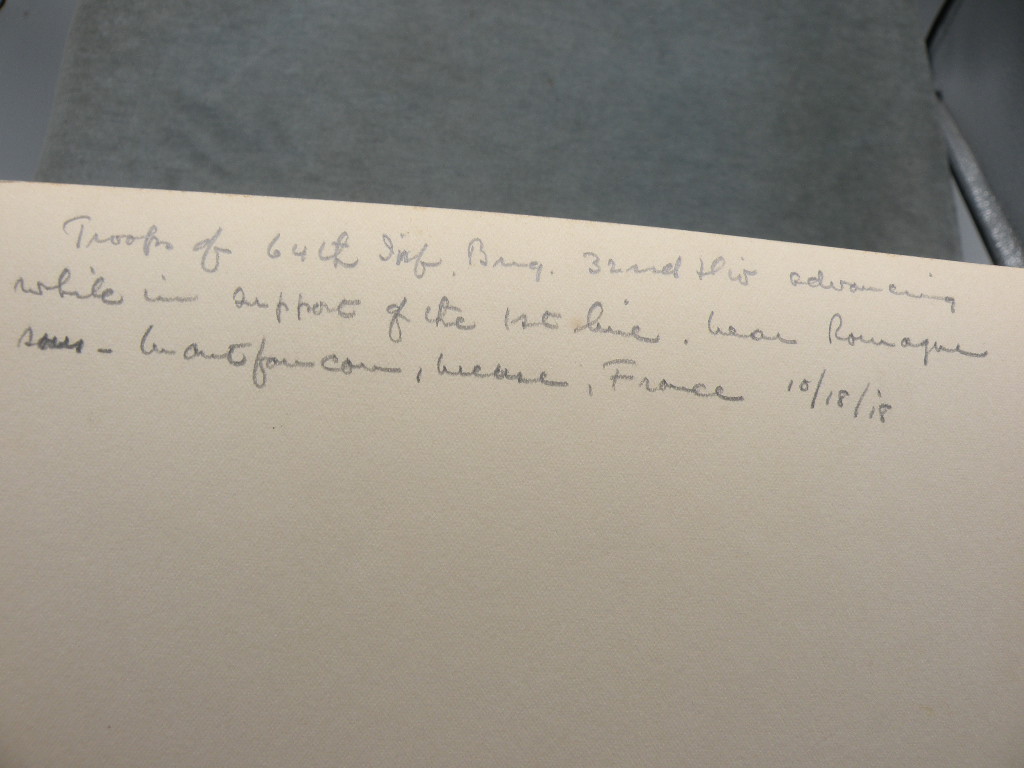 Troops of 64th Inf. Brig. 32nd Div advancing
while in support of the 1st line. Near Romagne
sous - Montfaucon, Meuse, France 10/18/18